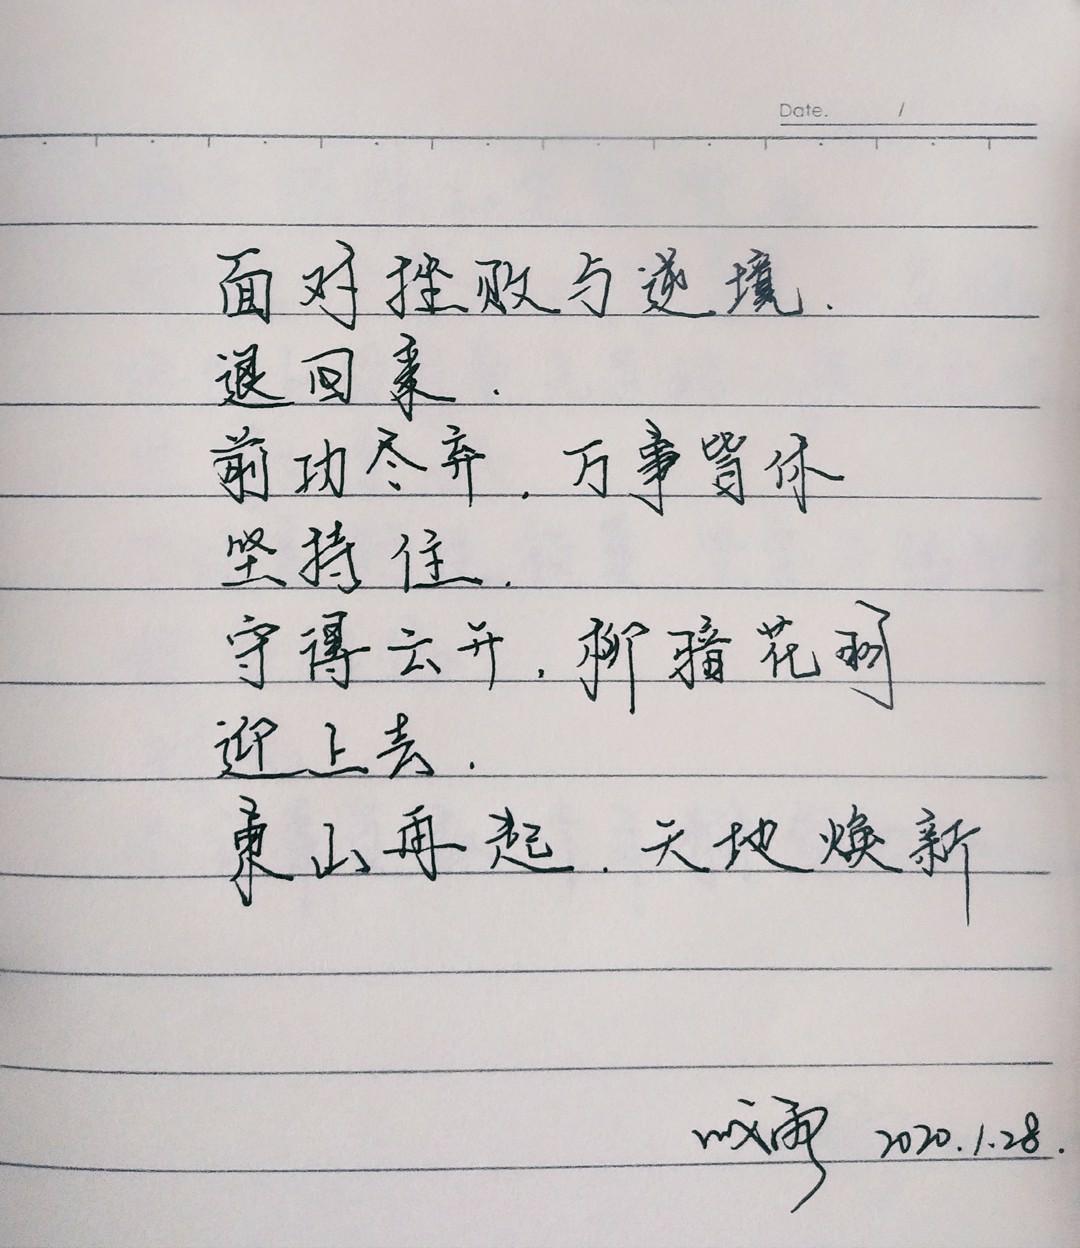 Date. /
面对挫败与逆境.
退回来.
前功尽弃,万事皆休
坚持住.
守得云开,柳暗花明
迎上去.
東山再起.天地焕新
2020.1.28.